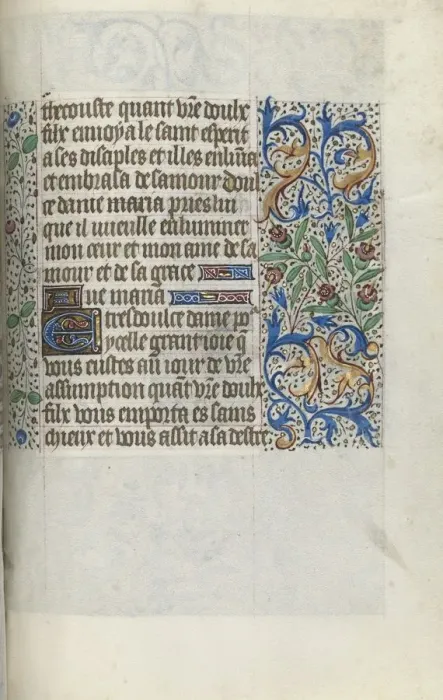 thecouste quant vre̅ doulx
filx enuoya le saint esperit
a ses disciples et illes enlu̅ia
et embrasa de samour doul
ce dame maria pries lui
que il vueille enluminer
mon cueur et mon ame de sa
mour et de sa grace
Aue maria
E tresdoulce dame po
celle grant ioie q̅
vous eustes au iour de vre̅
assumption qua̅t vre̅ doulx
filx vous emporta es sains
chieux et vous assit a sa destre